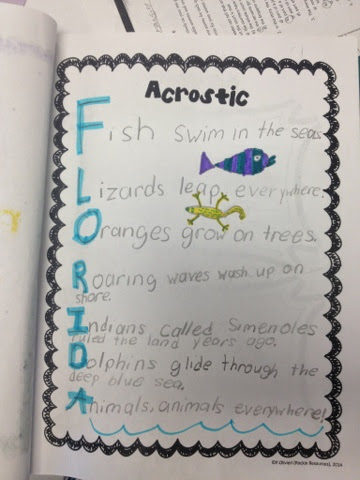 Acrostic
Fish swim in the seas.
Lizards leap everywhere.
Oranges grow on trees.
Roaring waves wash up on
shore.
Indians called Simenoles
ruled the land years ago.
Dolphins glide through the
deep blue sea.
Animals, animals everywhere!